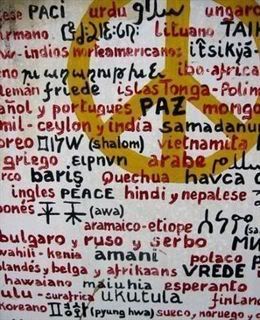 ese PACI urdu ungaro
rmano lituano TAI
w-indios norteamericanos
eno ibo-africa
lemán friede islas Tonga-Polin
añol y portugues PAZ mongo
mil-ceylon y india samadanu
oreo (shalom) vietnamita
griego EIPNVN arabe
rco bariş Quechua havca c
ingles PEACE hindi y nepalese
ponés 平禾 (awa)
aramaico-etiope
bulgaro y ruso y serbo
wahili-kenia amani polaco
landés y belga y afrikaans VREDE
hawaiano maluhia esperanto
ulu-surafrica ukutula finland
Koreano (pyung hwa) sueco, noruego y